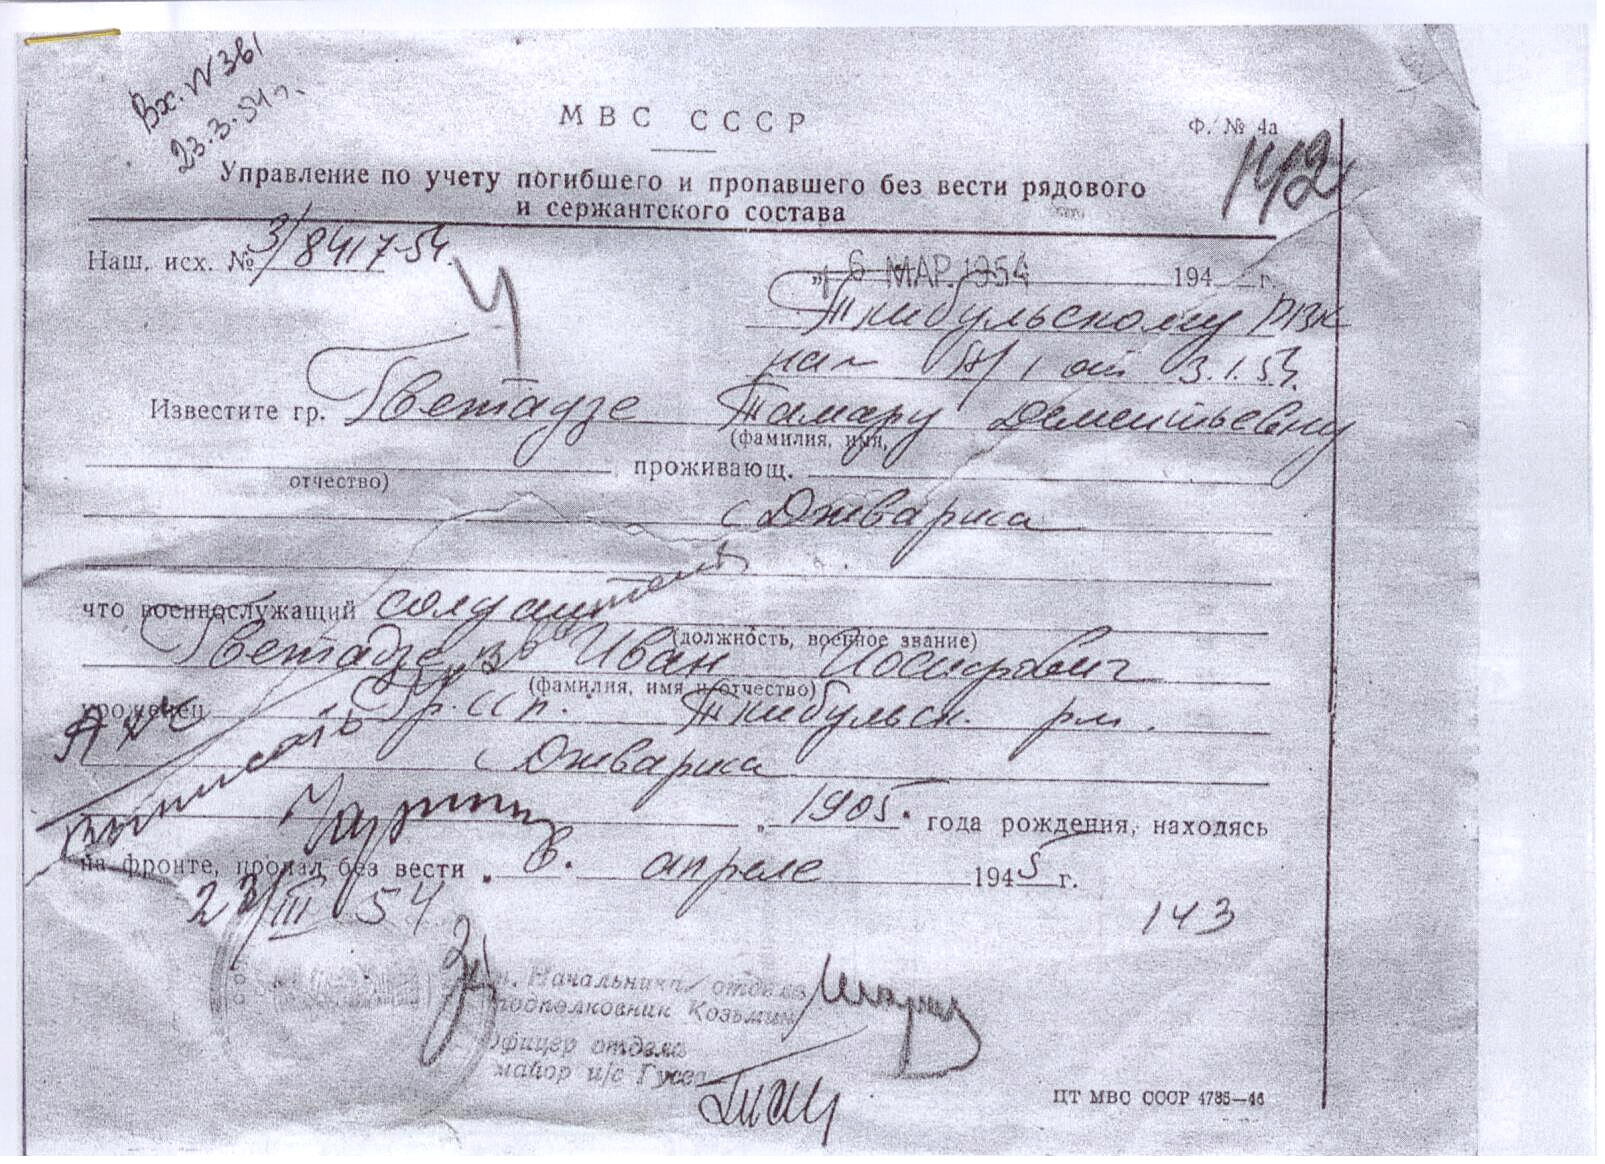 Вх. № 361
23.3.54 г.
МВС СССР
Ф. № 4а
142
Управление по учету погибшего и пропавшего без вести рядового
и сержантского состава
Наш. исх. № 3/8417-54.
„16 МАР. 1954 194 г.
Ткибульскому РВК
на № от 3.1.54.
Известите гр. Гветадзе Тамару Дементьевну
(фамилия, имя,
, проживающ.
отчество)
с Джвариса
что военнослужащий солдат
(должность, военное звание)
Гветадзе Иван Иосифович
(фамилия, имя и отчество)
уроженец Гр. ССР. Ткибульск. рн.
с Джвариса
„ 1905. года рождения, находясь
на фронте, пропал без вести „ в. апреле 1945 г.
23/III 54
143
Начальника отдела
подполковник Козьмин
Офицер отдела
майор и/с Гусев
ЦТ МВС СССР 4785—46